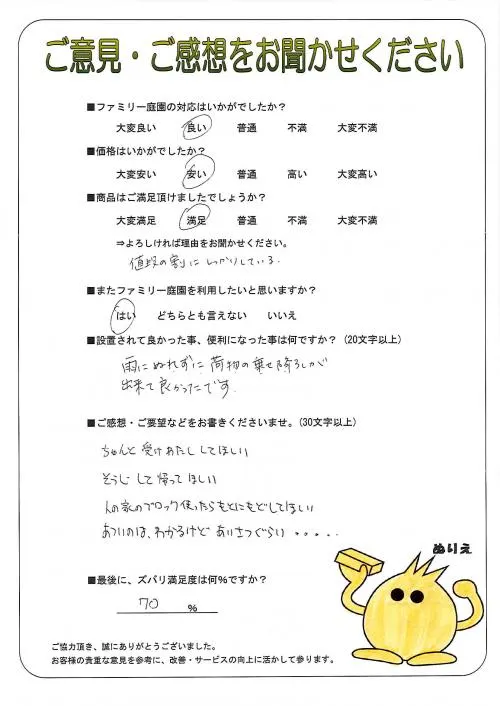 ご意見・ご感想をお聞かせください
■ファミリー庭園の対応はいかがでしたか？
大変良い 良い 普通 不満 大変不満
■価格はいかがでしたか？
大変安い 安い 普通 高い 大変高い
■商品はご満足頂けましたでしょうか？
大変満足 満足 普通 不満 大変不満
⇒よろしければ理由をお聞かせください。
値段の割にしっかりしている.
■またファミリー庭園を利用したいと思いますか？
はい どちらとも言えない いいえ
■設置されて良かった事、便利になった事は何ですか？（20文字以上）
雨にぬれずに荷物の乗せ降ろしが
出来て良かったです.
■ご感想・ご要望などをお書きくださいませ。(30文字以上）
ちゃんと受けわたししてほしい
そうじして帰ってほしい
人の家のブロック使ったらもとにもどしてほしい
あついのは、わかるけどあいさつぐらい・・・・.
ぬりえ
■最後に、ズバリ満足度は何％ですか？
70 %
ご協力頂き、誠にありがとうございました。
お客様の貴重な意見を参考に、改善・サービスの向上に活かして参ります。